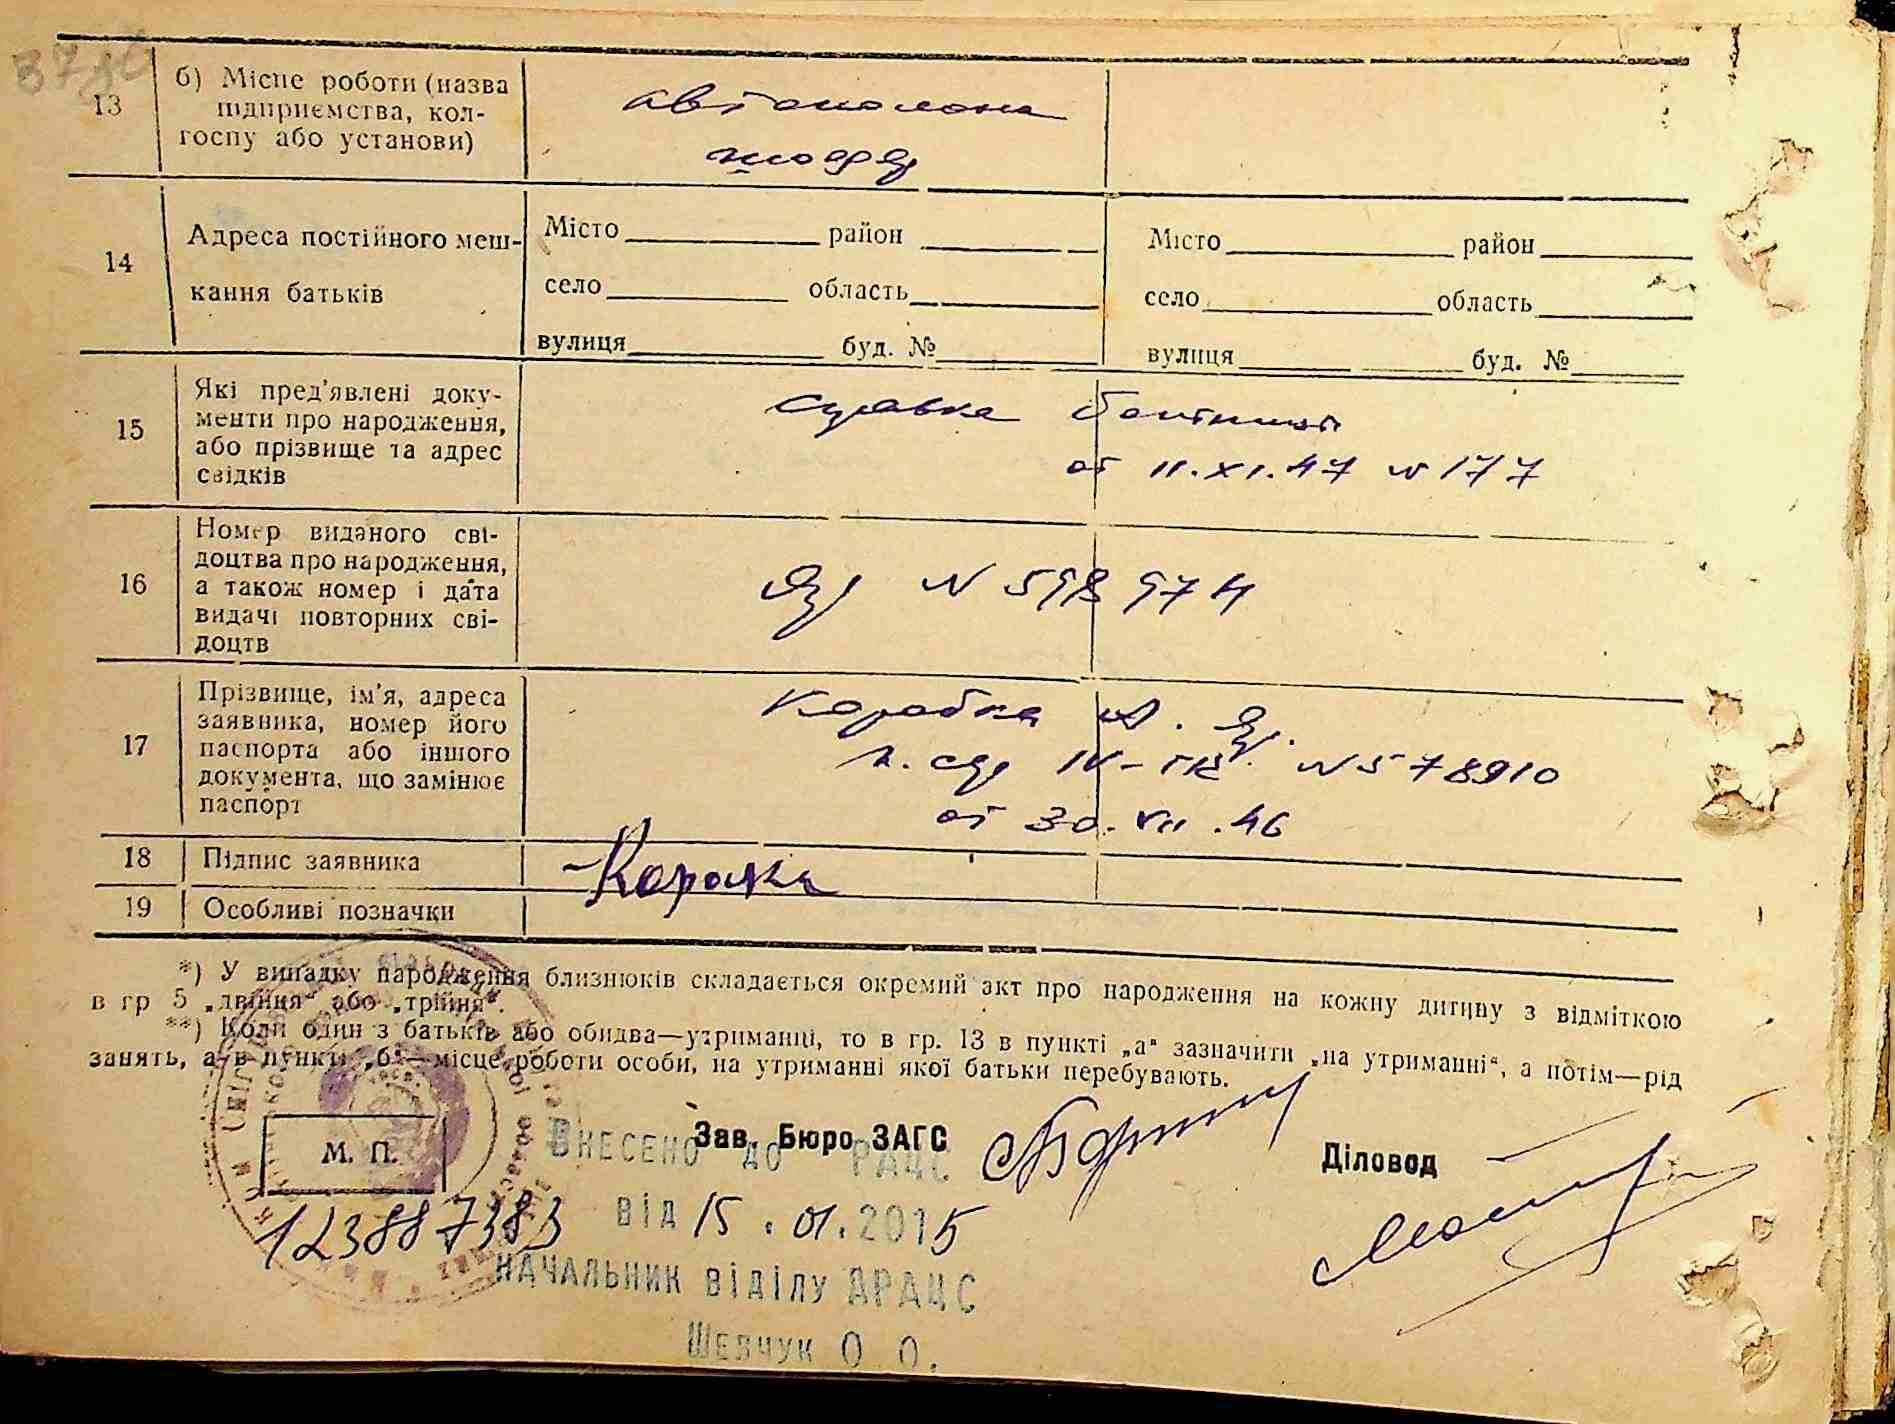 13
б) Місце роботи (назва
підприємства, кол-
госпу або установи)
автоколона
шофер
14
Адреса постійного меш-
кання батьків
Місто район
село область
вулиця буд. №
Місто район
село область
вулиця буд. №
15
Які пред'явлені доку-
менти про народження,
або прізвище та адрес
свідків
справка
от 11.XI.47 N 177
16
Номер виданого сві-
доцтва про народження,
а також номер і дата
видачі повторних сві-
доцтв
N 598974
17
Прізвище, ім'я, адреса
заявника, номер його
паспорта або іншого
документа, що замінює
паспорт
Коробка
IV- N 578910
от 30.VII.46
18
Підпис заявника
19
Особливі позначки
*) У випадку народження близнюків складається окремий акт про народження на кожну дитину з відміткою
в гр 5 „двійня“ або „трійня“.
**) Коли один з батьків або обидва—утриманці, то в гр. 13 в пункті „а“ зазначити „на утриманні“, а потім—рід
занять, а в пункті „б“—місце роботи особи, на утриманні якої батьки перебувають.
М. П.
Зав. Бюро ЗАГС
Діловод
ВНЕСЕНО ДО РАЦС
12388 7383
ВІД 15.01.2015
НАЧАЛЬНИК ВІДІЛУ ДРАЦС
ШЕВЧУК О О.